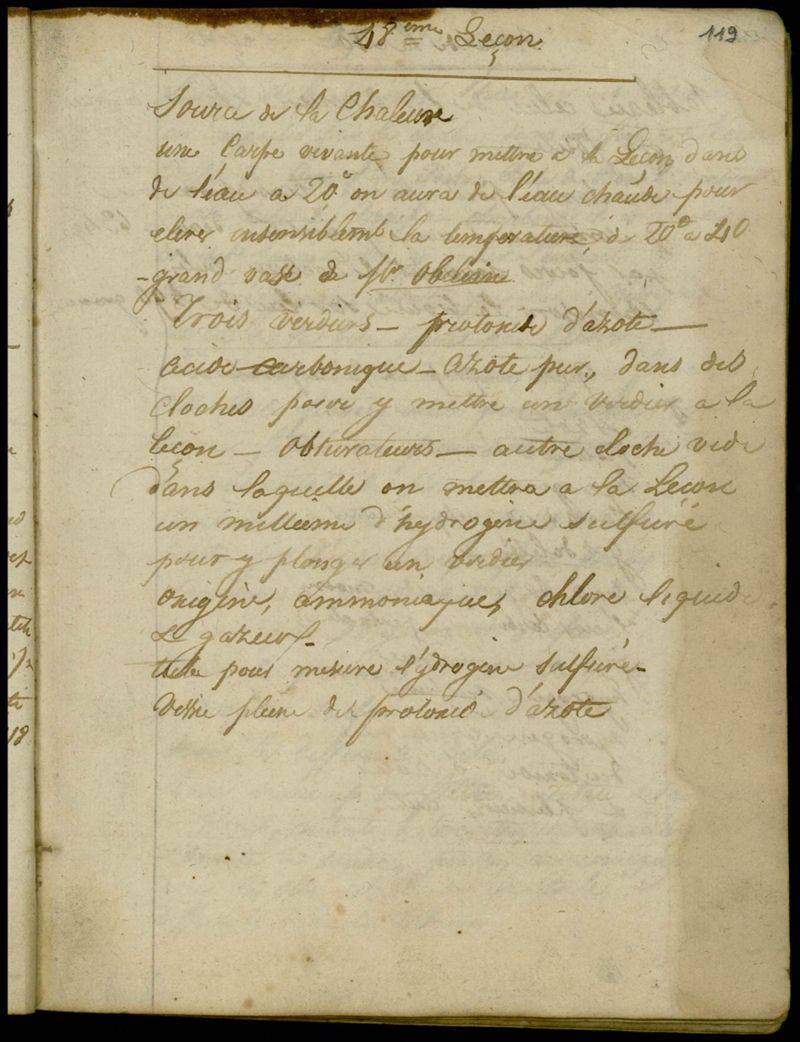 119
48ème Leçon
Source de la Chaleur
une Carpe vivante, pour mettre à la Leçon dans
de l'eau a 20° on aura de l'eau chaude pour
elever insensiblemt la temperature, de 20° a 40
- grand vase de Mr
Trois verdiers — protoxide d'azote —
acide carbonique — azote pur, dans des
cloches pour y mettre un verdier a la
leçon — obturateurs — autre cloche vide
dans laquelle on mettra a la Leçon
un millieme d'hydrogene sulfuré
pour y plonger un verdier
oxigène, ammoniaque, chlore liquide
& gazeux -
tube pour mesure l'ydrogene sulfuré -
Vessie pleine de protoxide d'azote